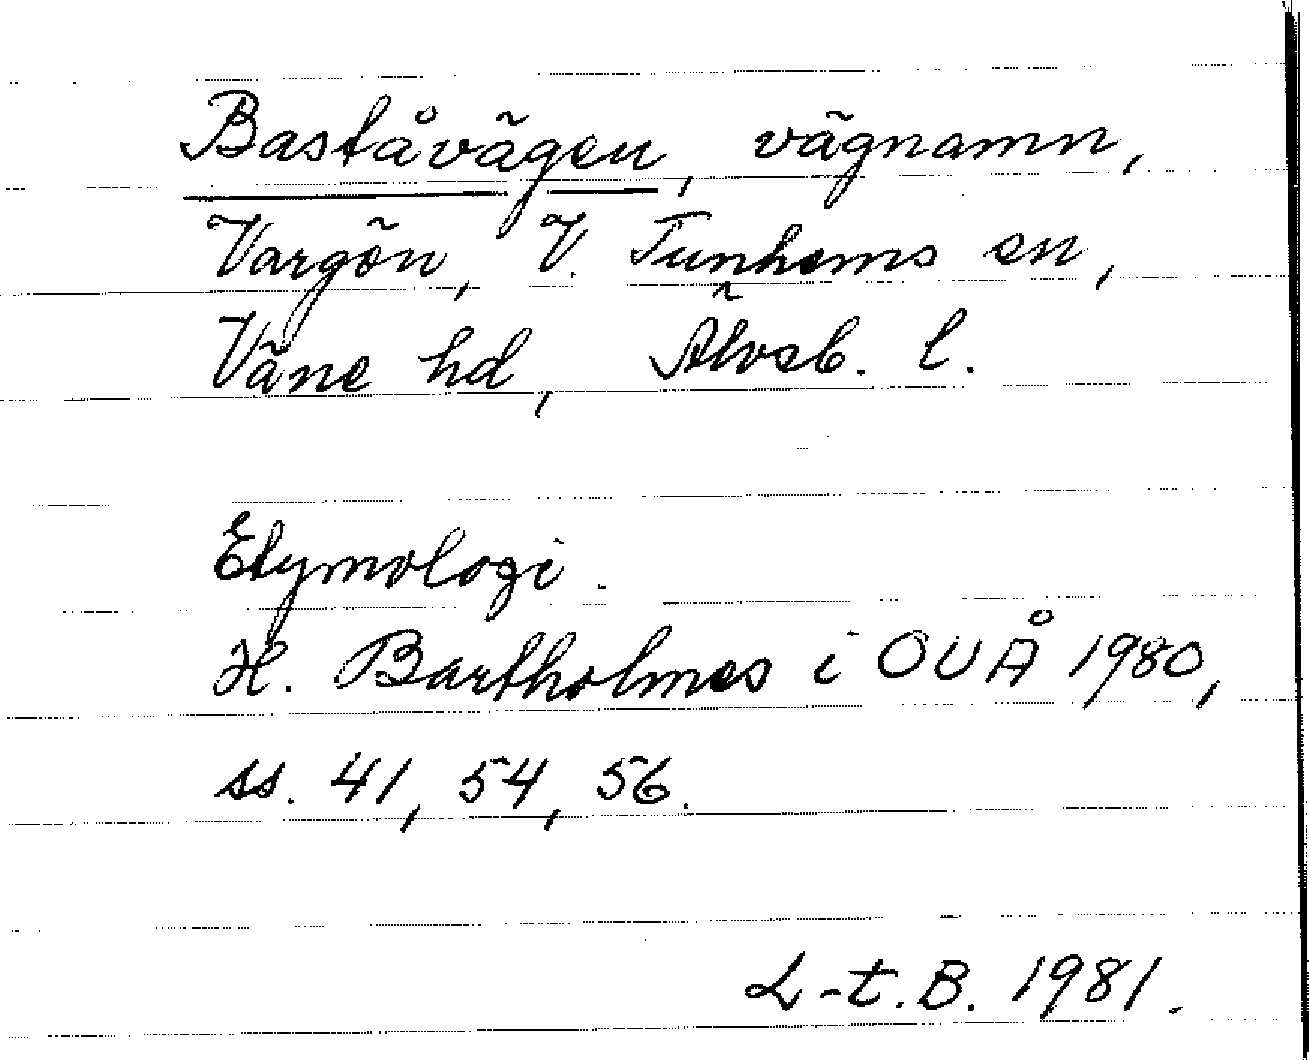 Baståvägen, vägnamn,
Vargön, V. Tunhems sn,
Väne hd, Älvsb. l.
Etymologi.
H. Bartholmes i OUÅ 1980,
ss. 41, 54, 56.
L-t.B. 1981.